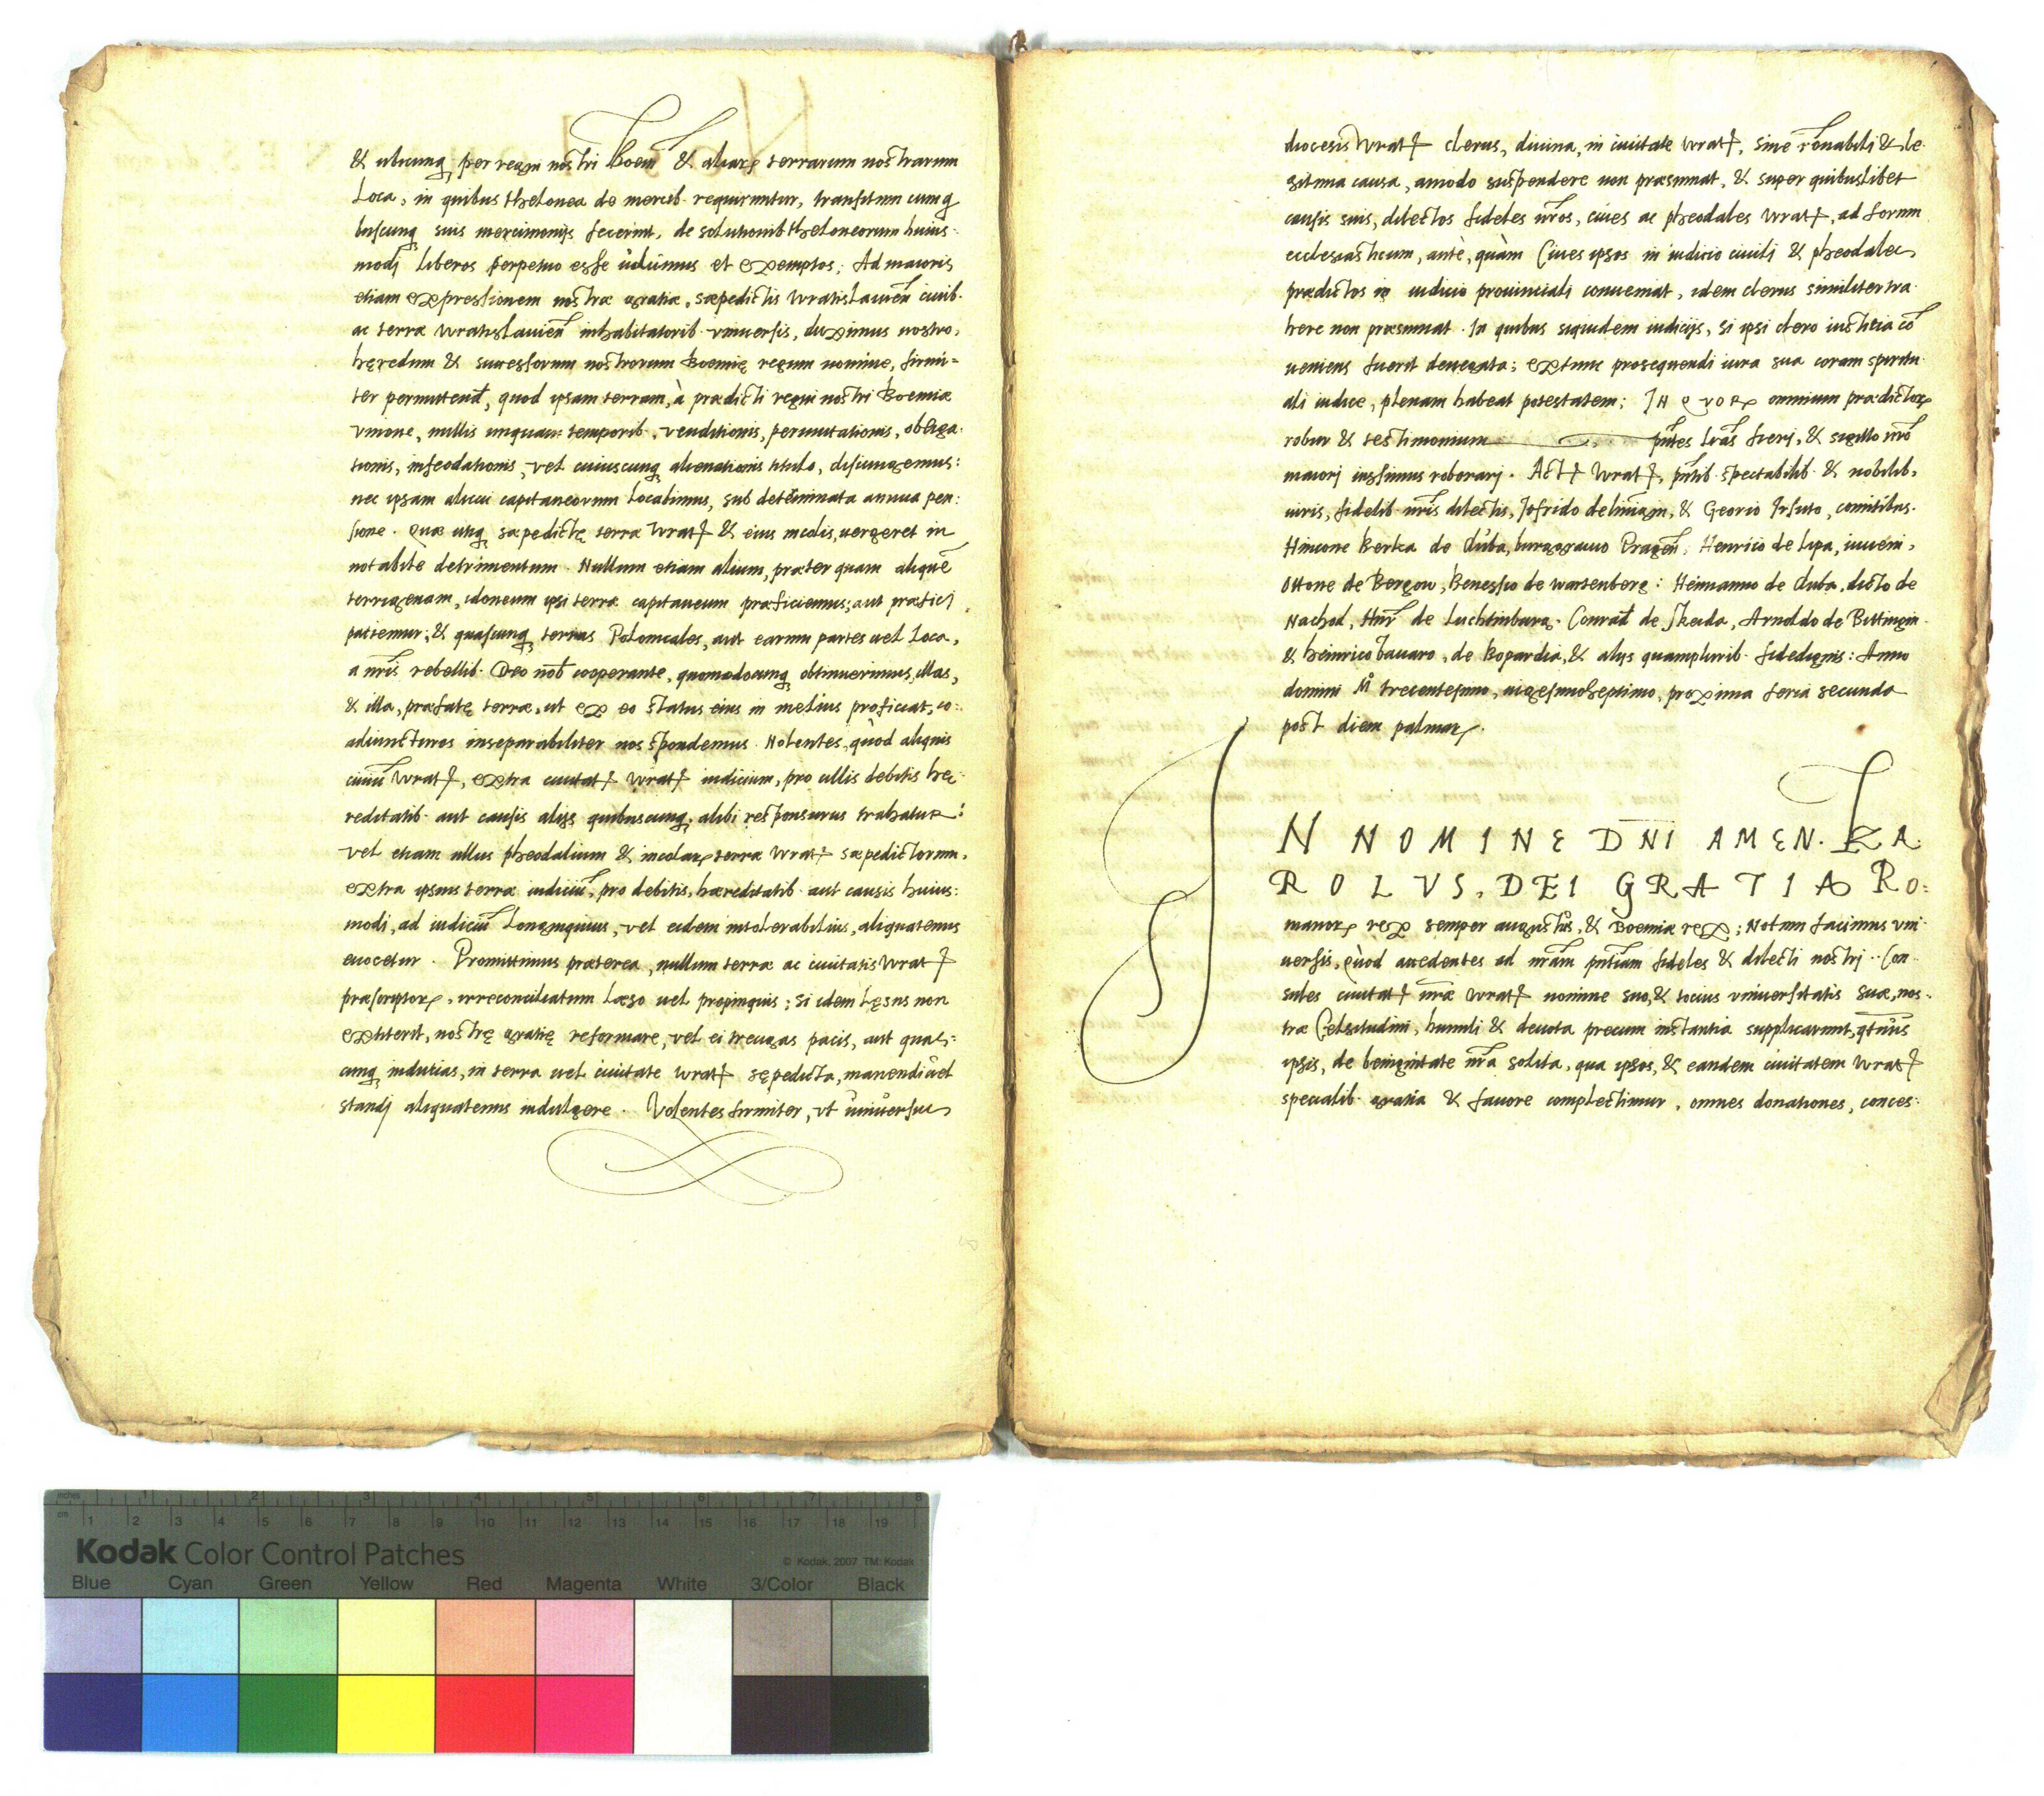 & ubicunq per regni nostri Boem & aliar terrarum nostrarum
Loca, in quibus thelonea de mercib. requiruntur, transitum cum q
buscunq suis mercimonijs fecerint, de solutionib theloneorum huius-
modi liberos perpetuo esse uolumus et exemptos; Ad maioris
etiam expressionem nostræ gratiæ, sæpedictis Wratislauien ciuib.
ac terræ Wratislauien inhabitatorib. vniuersis, duximus nostro,
hęredum & successorum nostrorum Boemię regum nomine, firmi=
ter permittend, quod ipsam terram, à prædicti regni nostri Boemiæ
vnione, nullis unquam temporib. venditionis, permutationis, obliga-
tionis, infeodationis, vel cuiuscunq alienationis titulo, disiungemus:
nec ipsam alicui capitaneorum Locabimus, sub determinata annua pen:
sione. Quæ utiq sæpedictę terræ Wrat & eius incolis, uergeret in
notabile detrimentum. Nullum etiam alium, præter quam aliquē
terrigenam, idoneum ipsi terræ capitaneum præficiemus, aut præficj
patiemur; & quascunq terras Polonicales, aut earum partes uel Loca,
a nris rebellib. Deo nob cooperante, quomodocunq obtinuerimus, illas,
& illa, præfatę terræ, ut ex eo status eius in melius proficiat, co:
adiuncturos inseparabiliter nos spondemus. Nolentes, quòd aliquis
ciuiu Wrat, extra ciuitat Wrat iudicium, pro ullis debitis hæ-
reditatib. aut causis alijs quibuscunq, alibi responsurus trahatur:
vel etiam ullus pheodalium & incolar terræ Wrat sæpedictorum,
extra ipsius terræ iudiciu, pro debitis, hæreditatib. aut causis huius:
modi, ad iudiciu Longinquius, vel eidem intolerabilius, aliquatenus
euocetur. Promittimus præterea, nullum terræ ac ciuitatis Wrat
præscriptor, irreconciliatum Læso uel propinquis; si idem Lęsus non
extiterit, nostrę gratię reformare, vel ei treugas pacis, aut quas:
cunq inducias, in terra uel ciuitate Wrat sępedicta, manendi uel
standj aliquatenus indulgere. Volentes firmiter, vt uniuersus
diocesis Wrat clerus, diuina, in ciuitate Wrat, sine ronabili & le-
gitima causa, amodo suspendere non præsumat, & super quibuslibet
causis suis, dilectos fideles nros, ciues ac pheodales Wrat, ad forum
ecclesiasticum, antè, quàm Ciues ipsos in iudicio ciuili & pheodales
prædictos in iudicio prouinciali conueniat, idem clerus similiter tra-
here non præsumat. In quibus siquidem iudicijs, si ipsi clero iusticia cō
ueniens fuerit denegata; extunc prosequendi iura sua coram spiritu-
ali iudice, plenam habeat potestatem; IN QVOR omnium prædictor
robur & testimonium pntes Lras fierj, & sigillo nro
maiorj iussimus roborarj. Act Wrat, pntib. spectabilib. & nobilib.
uiris, fidelib. nris dilectis, Jofrido de linmagn, & Georio Irsuto, comitibus.
Himcone Berka de Duba, burggrauio Pragen, Henrico de Lipa, iuueni,
Ottone de Bergow, Benessio de wartenberg: Heimanno de Duba, dicto de
Nachod, Hnr de Luchtinburg. Conrad de Skeida, Arnoldo de Bittingin.
& heinrico Bauaro, de Bopardia, & alijs quamplurib. fidedignis: Anno
domini M trecentesimo, uigesimoseptimo, proxima feria secunda
post diem palmar.
IN NOMINE DNI AMEN. KA-
ROLVS, DEI GRATIA RO:
manor rex semper augustus, & Boemiæ rex; Notum facimus vni-
uersis, Quòd accedentes ad nram pntiam fideles & dilecti nostrj.. Con-
sules ciuitat nræ Wrat nomine suo, & tocius vniuersitatis suæ, nos-
træ Celsitudini, humili & deuota precum instantia supplicarunt, qtnus
ipsis, de benignitate nra solita, qua ipsos, & eandem ciuitatem Wrat
specialib. gratia & fauore complectimur, omnes donationes, conces-
Kodak Color Control Patches
© Kodak, 2007 TM: Kodak
Blue Cyan Green Yellow Red Magenta White 3/Color Black